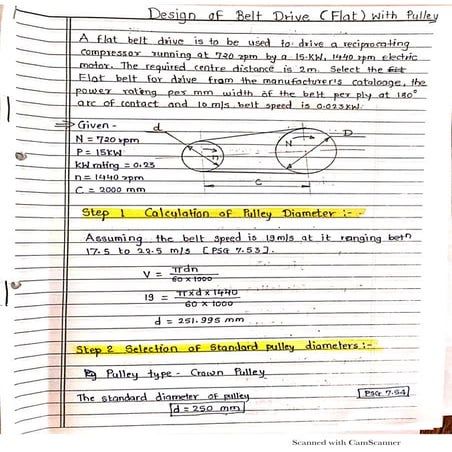 Design of Belt Drive (Flat) with Pulley
A flat belt drive is to be used to drive a reciprocating
compressor running at 720 rpm by a 15-KW, 1440 rpm electric
motor. The required centre distance is 2m. Select the
Flat belt for drive from the manufacturer's catalouge, the
power rating per mm width of the belt per ply at 180°
arc of contact and 10 m/s belt speed is 0.023 KW.
⇒ Given - d D
N = 720 rpm N
P = 15KW n
KW rating = 0.23
n = 1440 rpm
C = 2000 mm C
Step 1 Calculation of Pulley Diameter :-
Assuming the belt speed is 19m/s at it ranging betn
17.5 to 22.5 m/s [PSG 7.53].
V = πdn / 60 x 1000
19 = π x d x 1440 / 60 x 1000
d = 251.995 mm
Step 2 Selection of Standard pulley diameters :-
Pulley type - Crown Pulley
The standard diameter of pulley PSG 7.54
d = 250 mm
Scanned with CamScanner